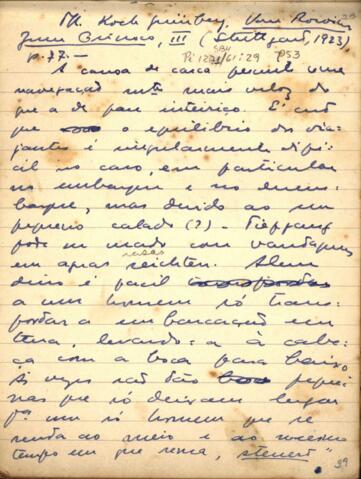 Th. Koch Grünberg, Vom Roroima
Zum Orinoco, III (Stuttgart, 1923),
p. 77 —
A canoa de casca permite uma
navegação muito mais veloz do
que a de pau inteiriço. É certo
que o equilíbrio dos via-
jantes é singularmente difi-
cil no caso, em particular
no embarque e no desem-
barque, mas devido ao seu
pequeno calado (?) - Tiefgang
pode ser usado com vantagem
em aguas seichten. Alem
disso é facil
a um homem só trans-
portar a embarcação em
terra, levando-a à cabe-
ça com a boca para baixo
Às vezes são tão peque-
nas que só deixam lugar
pª um só homem que se
senta ao meio e ao mesmo
tempo em que rema, steuert"
39